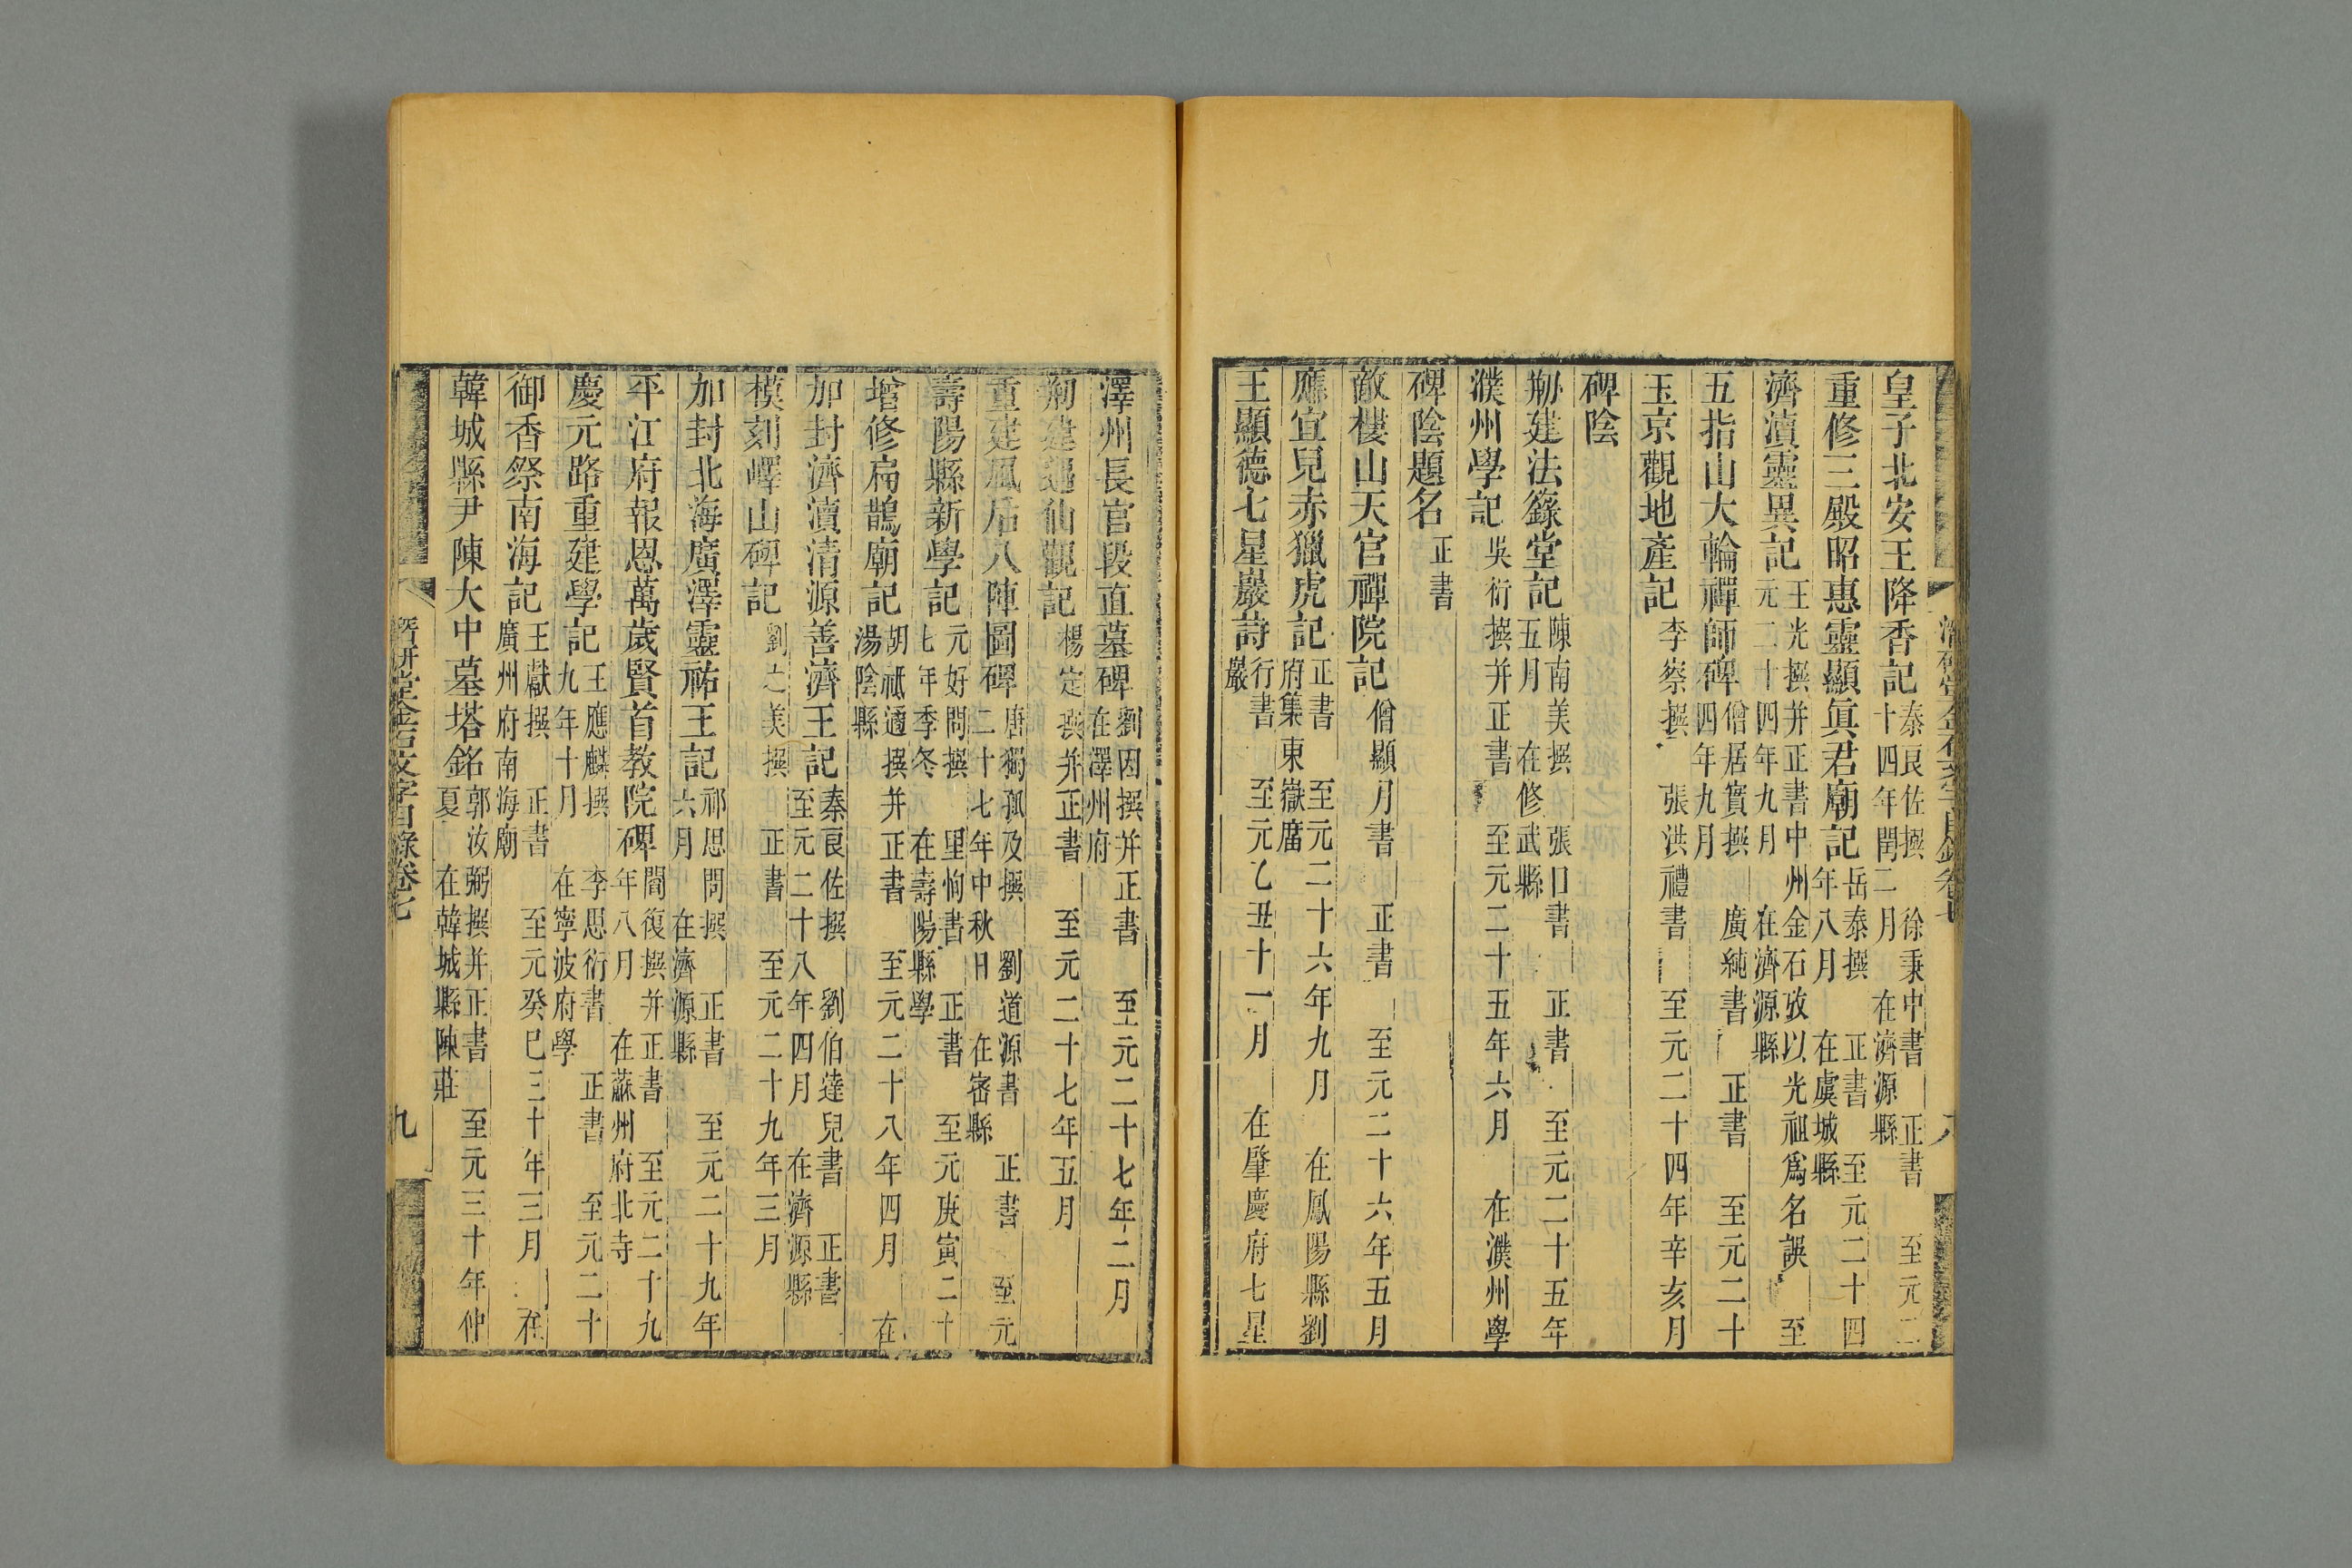 皇子北安王降香記 秦良佐撰 徐秉中書 正書 至元二十四年閏二月 在濟源縣
重修三殿昭惠靈顯眞君廟記 岳泰撰 正書 至元二十四年八月 在虞城縣
濟瀆靈異記 王光撰并正書中州金石攷以光祖爲名誤 至元二十四年九月 在濟源縣
五指山大輪禪師碑 僧居實撰 廣純書 正書 至元二十四年九月
玉京觀地產記 李察撰 張洪禮書 至元二十四年辛亥月
碑陰
剏建法籙堂記 陳南美撰 張口書 正書 至元二十五年五月 在修武縣
濮州學記 吳衍撰并正書 至元二十五年六月 在濮州學
碑陰題名 正書
敵樓山天官禪院記 僧顯月書 正書 至元二十六年五月
應宜兒赤獵虎記 正書 至元二十六年九月 在鳳陽縣劉府集東嶽廟
王顯德七星巖詩 行書 至元乙丑十一月 在肇慶府七星巖
八
澤州長官段直墓碑 劉因撰并正書 至元二十七年二月 在澤州府
剏建遇仙觀記 楊定撰并正書 至元二十七年五月
重建風后八陣圖碑 唐獨孤及撰 劉道源書 正書 至元二十七年中秋日 在密縣
壽陽縣新學記 元好問撰 里恂書 正書 至元庚寅二十七年季冬 在壽陽縣學
增修扁鵲廟記 胡祗遹撰并正書 至元二十八年四月 在湯陰縣
加封濟瀆清源善濟王記 秦良佐撰 劉伯蓬兒書 正書 至元二十八年四月 在濟源縣
模刻嶧山碑記 劉之美撰 正書 至元二十九年三月
加封北海廣澤靈祐王記 祁思問撰 正書 至元二十九年六月 在濟源縣
平江府報恩萬歲賢首教院碑 閻復撰并正書 至元二十九年八月 在蘇州府北寺
慶元路重建學記 王應麟撰 李思衍書 正書 至元二十九年十月 在寧波府學
御香祭南海記 王獻撰 正書 至元癸巳三十年三月 在廣州府南海廟
韓城縣尹陳大中墓塔銘 郭汝弼撰并正書 至元三十年仲夏 在韓城縣陳莊
潛研堂金石文字目錄卷七 九